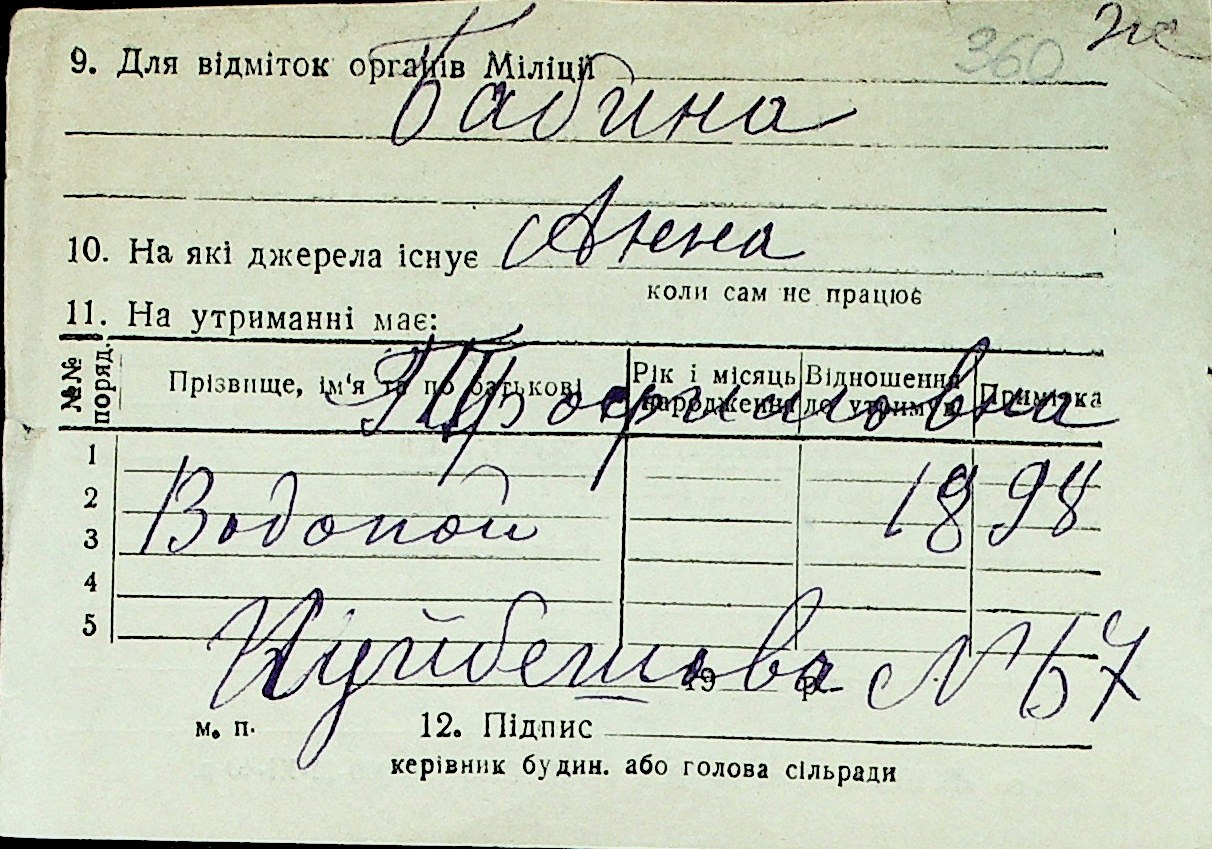 360 ж
9. Для відміток органів Міліції
Бабина
10. На які джерела існує Анна
коли сам не працює
11. На утриманні має:
№№ поряд. Прізвище, ім'я та по батькові Рік і місяць народження Відношення до утримув. Примітка
Трофимовна
1
2 Водопой 1898
3
4
5
Куйбешова N 57
19 р.
м. п. 12. Підпис
керівник будин. або голова сільради